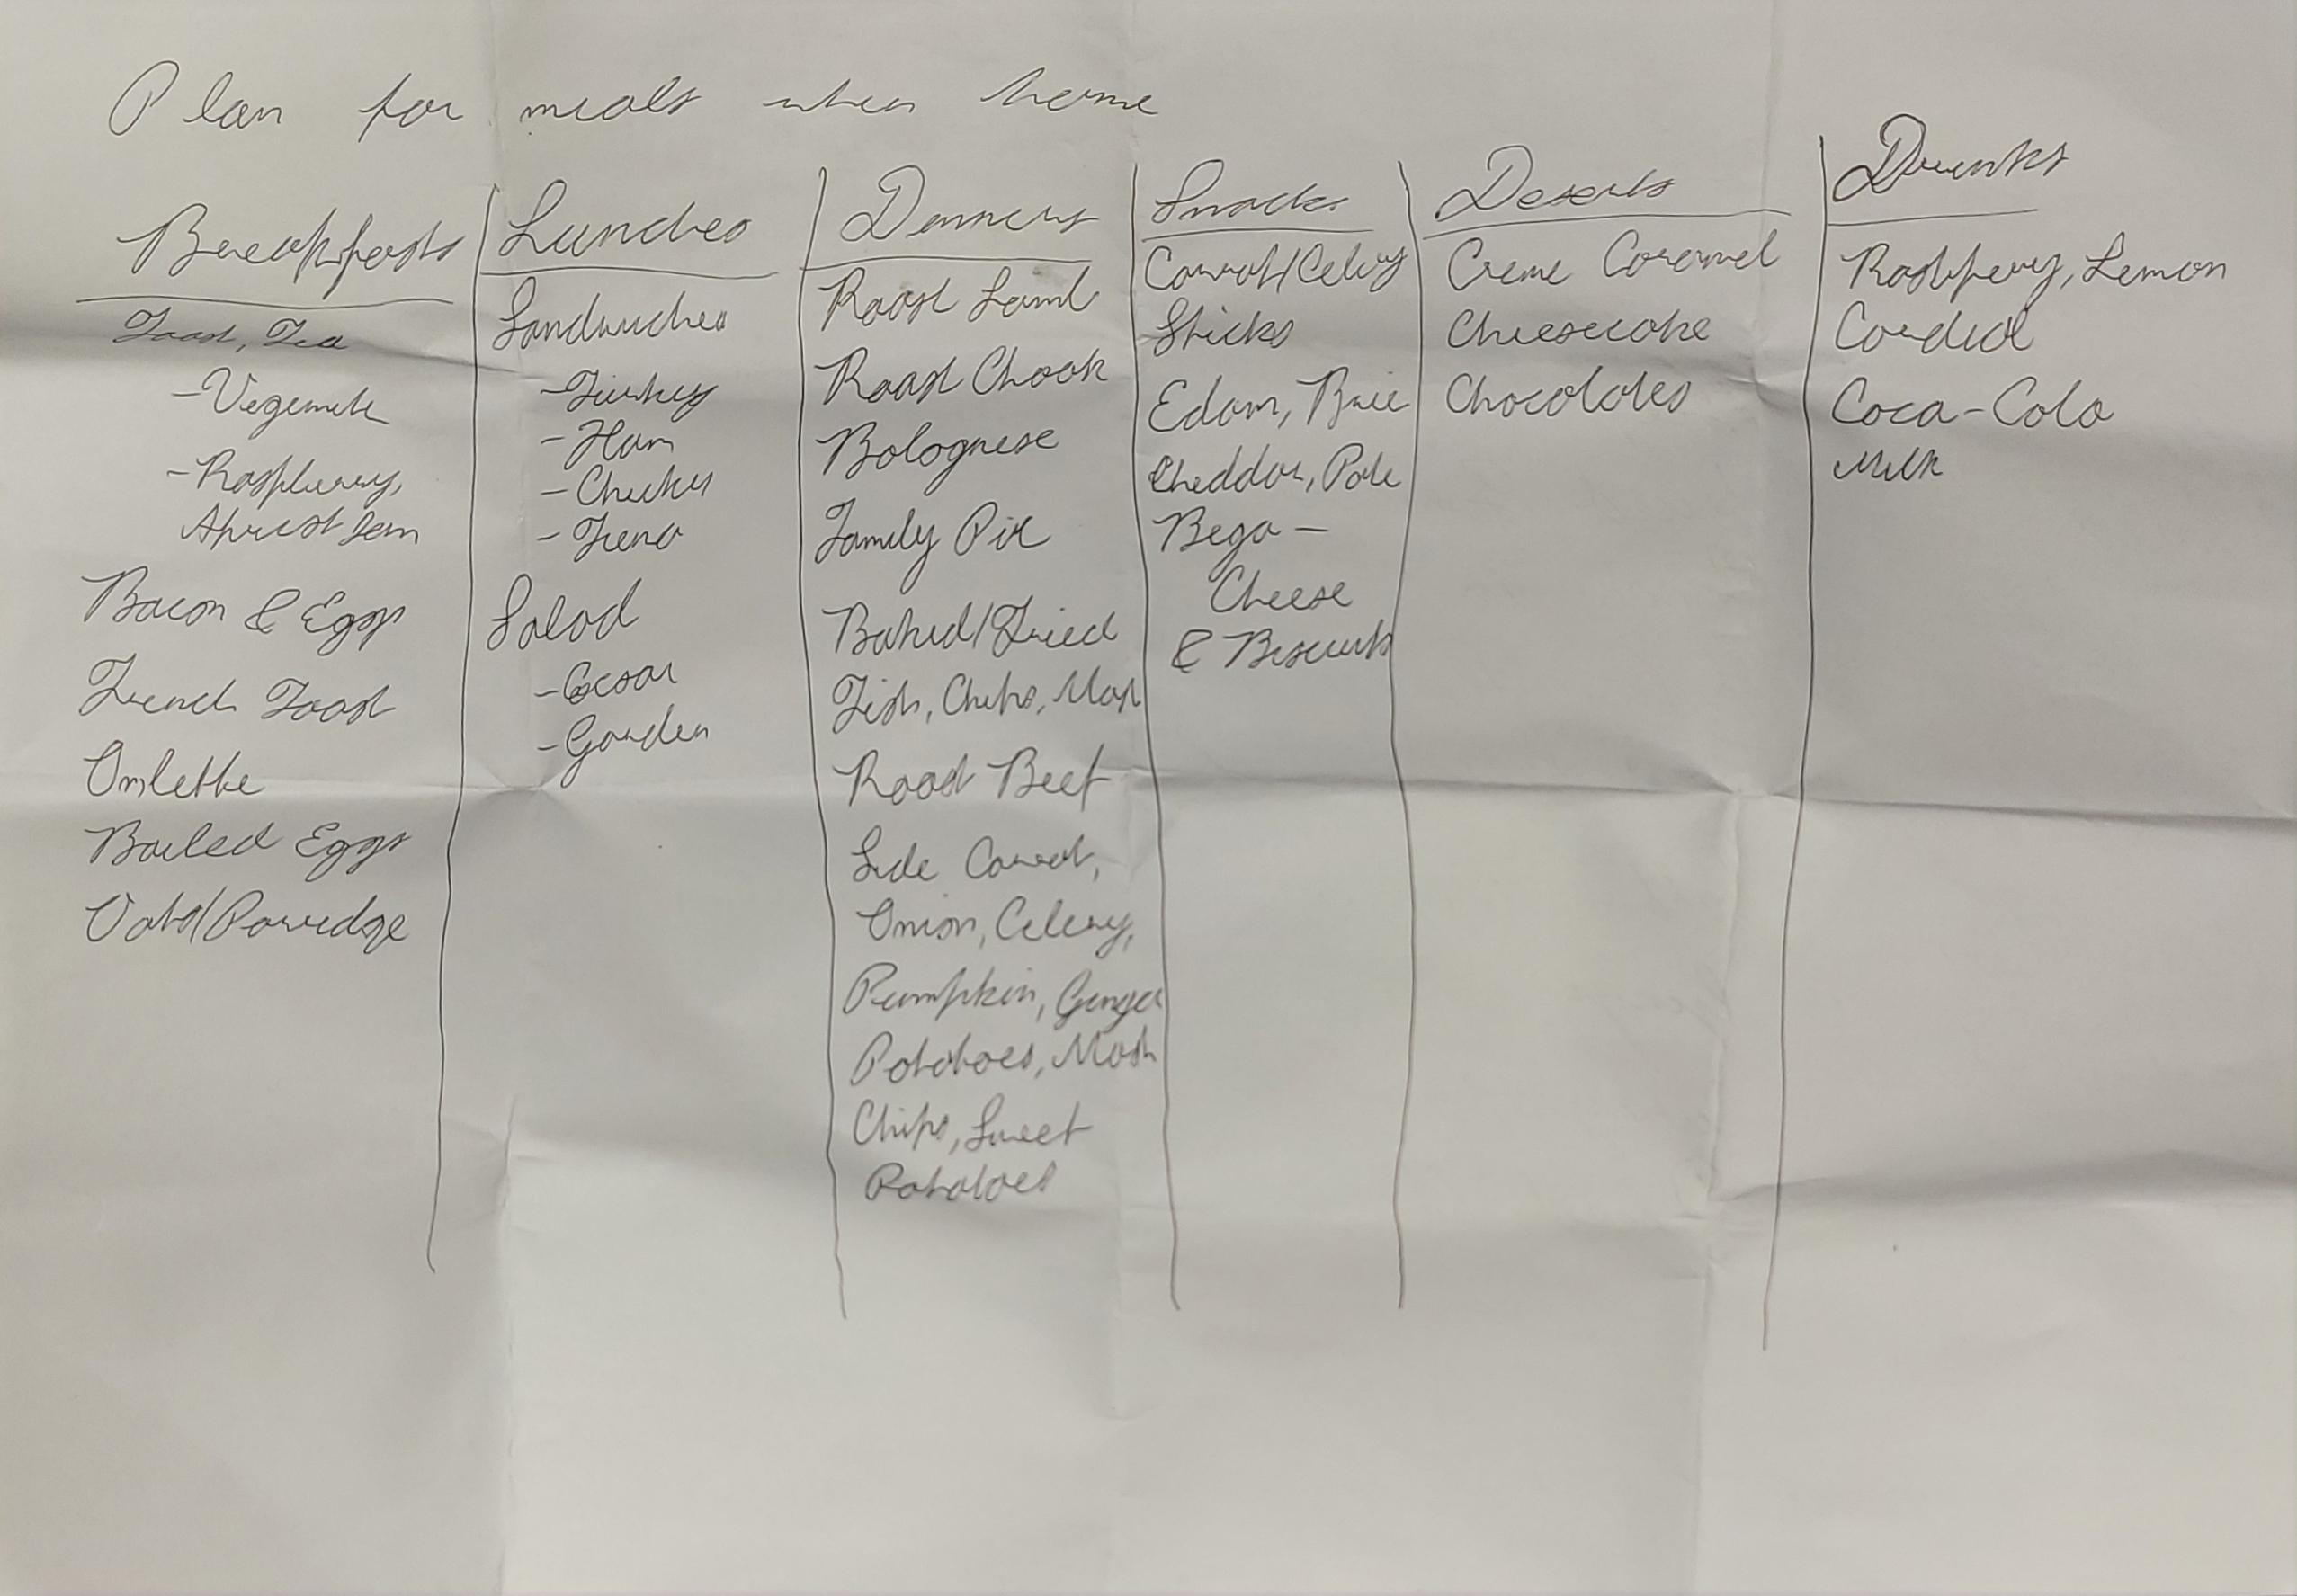 Plan for meals when home
Breakfasts
Toast, Tea
- Vegemite
- Raspberry,
Apricot Jam
Bacon & Eggs
French Toast
Omlette
Boiled Eggs
Oats/Porridge
Lunches
Sandwiches
- Turkey
- Ham
- Chicken
- Tuna
Salad
- Cesar
- Garden
Dinners
Roast Lamb
Roast Chook
Bolognese
Family Pie
Baked/Fried
Fish, Chips, Mash
Roast Beef
Side Carrot,
Onion, Celery,
Pumpkin, Ginger
Potatoes, Mash
Chips, Sweet
Potatoes
Snacks
Carrot/Celery
Sticks
Edam, Brie
Cheddar, Pate
Bega -
Cheese
& Biscuits
Deserts
Creme Caramel
Cheesecake
Chocolates
Drinks
Raspberry, Lemon
Cordial
Coca-Cola
Milk